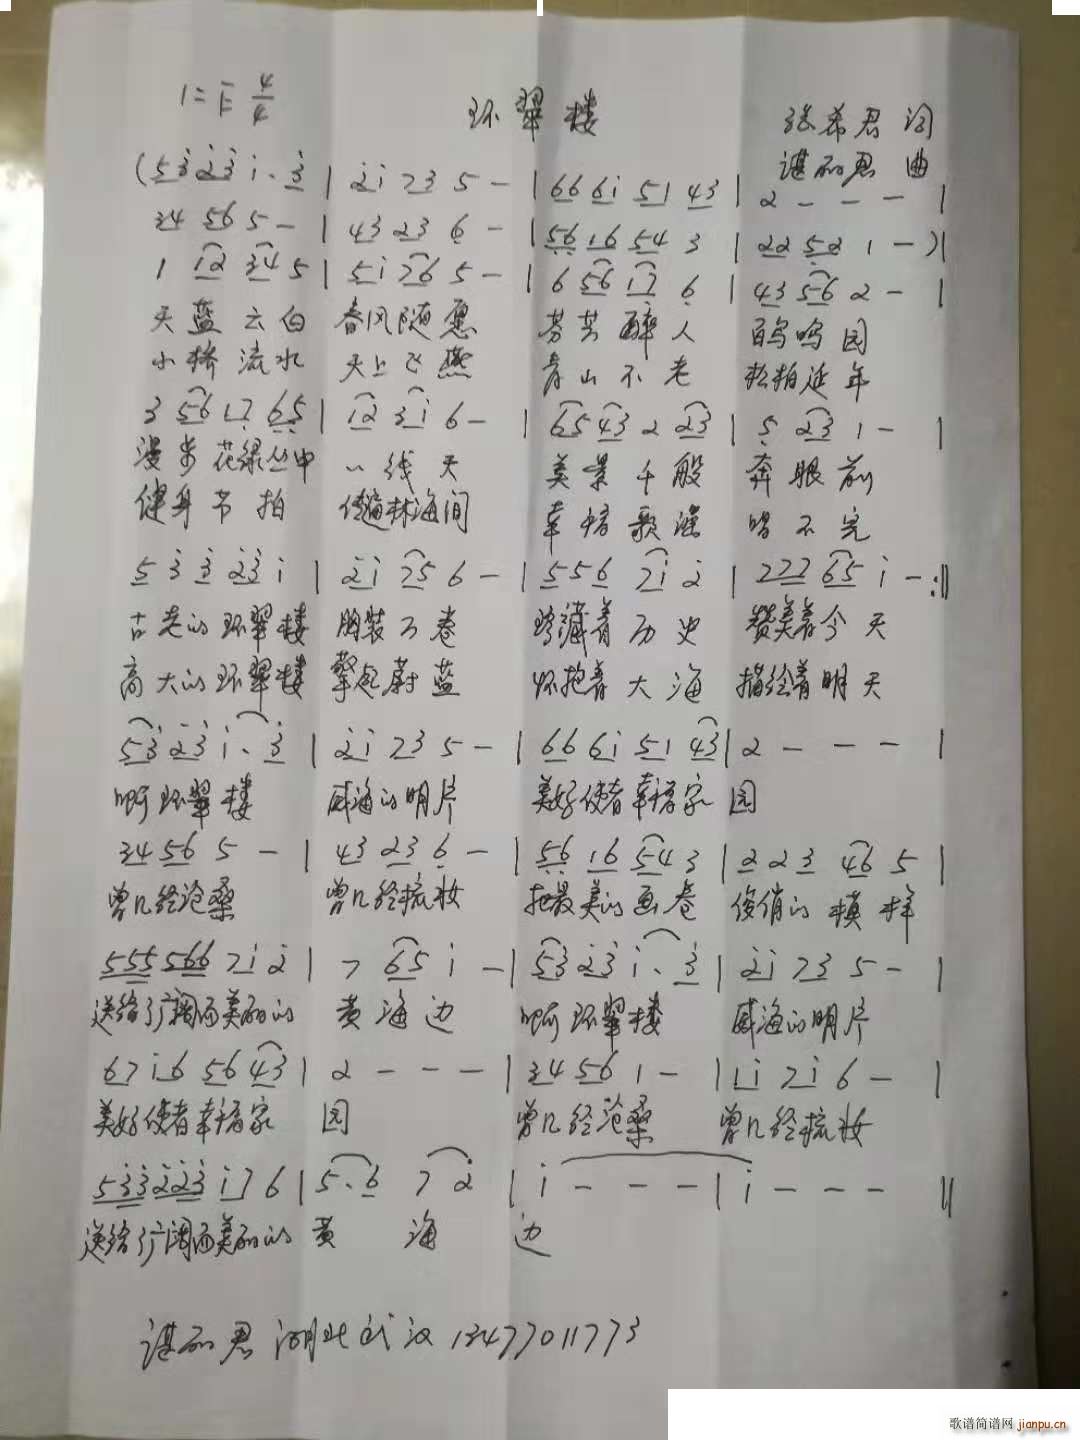 1=F 4/4
环翠楼
张希君 词
谌丽君 曲
(5 3 2 3 1. 3 | 2 1 7 3 5 - | 6 6 6 1 5 1 4 3 | 2 - - - |
3 4 5 6 5 - | 4 3 2 3 6 - | 5 6 1 6 5 4 3 | 2 2 5 2 1 - )|
1 1 2 3 4 5 | 5 1 7 6 5 - | 6 5 6 1 7 6 | 4 3 5 6 2 - |
天蓝云白 春风随愿 芬芳醉人 百鸟鸣园
小桥流水 天上飞燕 青山不老 松柏延年
3 5 6 1 7 6 5 | 1 2 3 1 6 - | 6 5 4 3 2 2 3 | 5 2 3 1 - |
漫步花绿丛中 一线天 美景千般 奔眼前
健身节拍 传遍林海间 幸福歌谣 唱不完
5 3 3 2 3 1 | 2 1 7 5 6 - | 5 5 6 7 1 2 | 7 7 7 6 5 1 - :||
古老的环翠楼 胸装万卷 珍藏着历史 赞美着今天
高大的环翠楼 擎起蔚蓝 怀抱着大海 描绘着明天
5 3 2 3 1. 3 | 2 1 7 3 5 - | 6 6 6 1 5 1 4 3 | 2 - - - |
啊环翠楼 威海的明片 美好使者幸福家 园
3 4 5 6 5 - | 4 3 2 3 6 - | 5 6 1 6 5 4 3 | 2 2 3 4 6 5 |
曾几经沧桑 曾几经梳妆 把最美的画卷 俊俏的模样
5 5 5 5 6 6 7 1 2 | 7 6 5 1 - | 5 3 2 3 1. 3 | 2 1 7 3 5 - |
送给了广阔而美丽的 黄海边 啊环翠楼 威海的明片
6 7 1 6 5 6 4 3 | 2 - - - | 3 4 5 6 1 - | 1 1 7 1 6 - |
美好使者幸福家 园 曾几经沧桑 曾几经梳妆
5 3 3 2 2 3 1 7 6 | 5. 6 7 2 | 1 - - - | 1 - - - ||
送给了广阔而美丽的 黄 海 边
谌丽君 湖北武汉 13477011773
歌谱简谱网 jianpu.cn